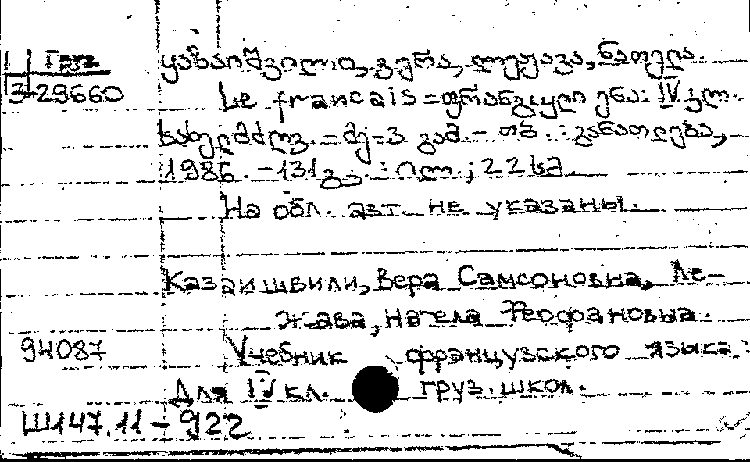 Груз
3-29660
ყაზაიშვილი, ვერა, ლეჟავა, ნათელა.
Le francais = ფრანგული ენა: IV კლ.
სახელმძღვ. = მე-3 გამ. - თბ.: განათლება,
1986. - 131 გვ.: ილ.; 22 სმ
На обл. авт. не указаны.
Казаишвили, Вера Самсоновна, Ле-
жава, Натела Феофановна.
94087 Учебник французского языка:
Для IV кл. груз. школ.
Ш147.11-922